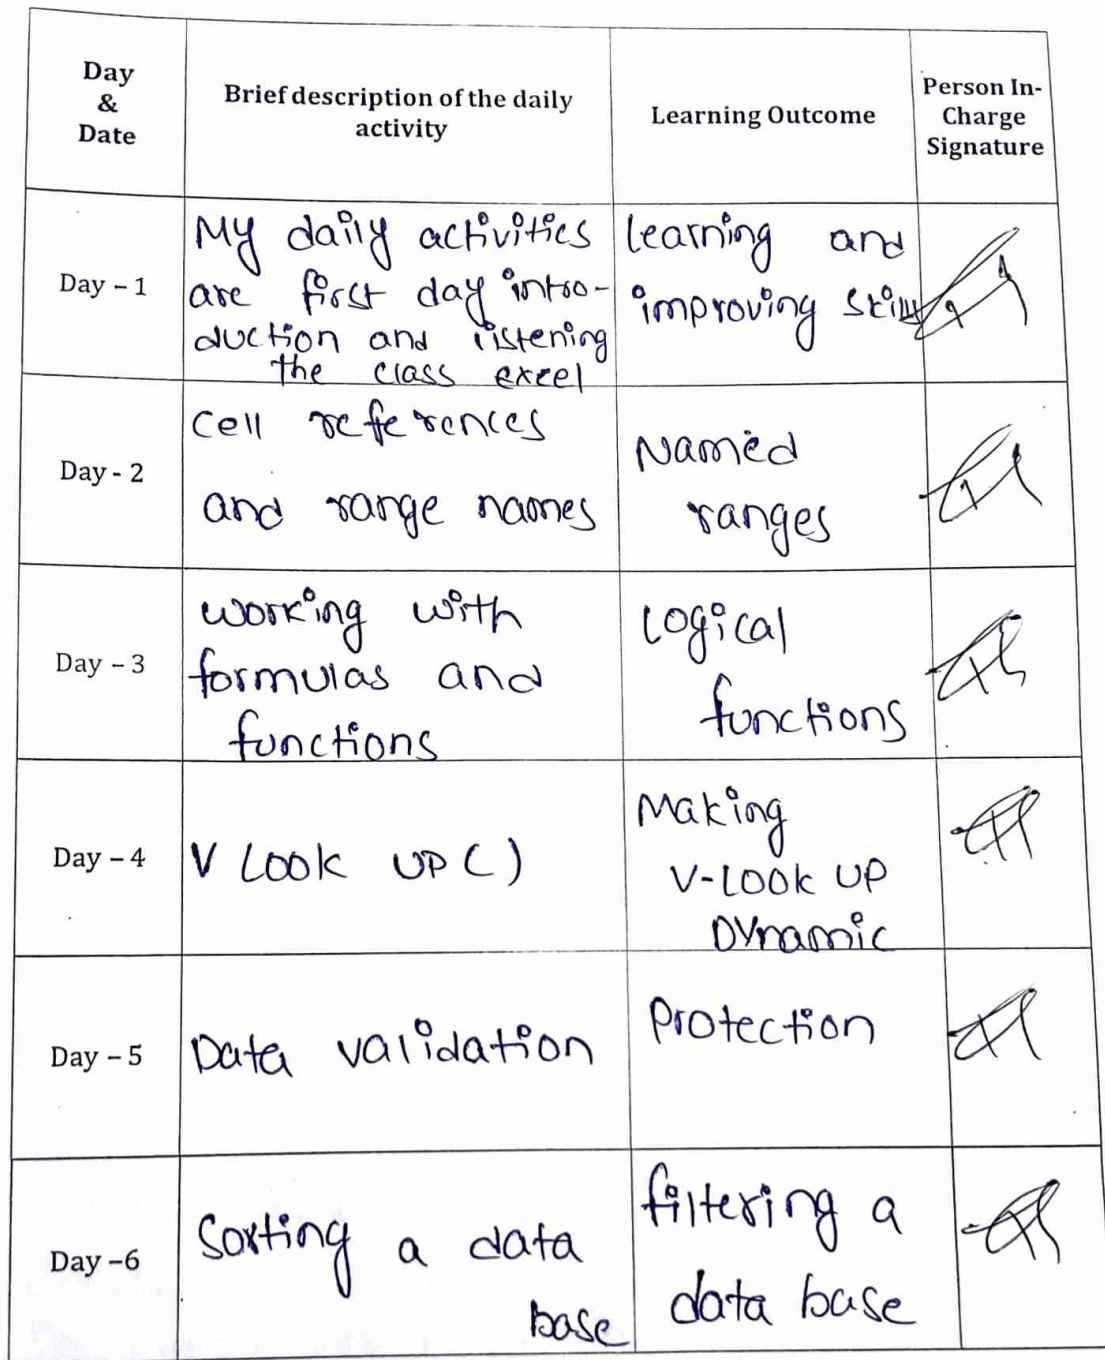 Day
&
Date
Brief description of the daily
activity
Learning Outcome
Person In-
Charge
Signature
Day – 1
My daily activities
are first day intro-
duction and listening
the class excel
learning and
improving skills
Day - 2
Cell references
and range names
Named
ranges
Day – 3
working with
formulas and
functions
Logical
functions
Day – 4
V Look UP ( )
Making
V-Look UP
Dynamic
Day – 5
Data validation
Protection
Day –6
Sorting a data
base
filtering a
data base